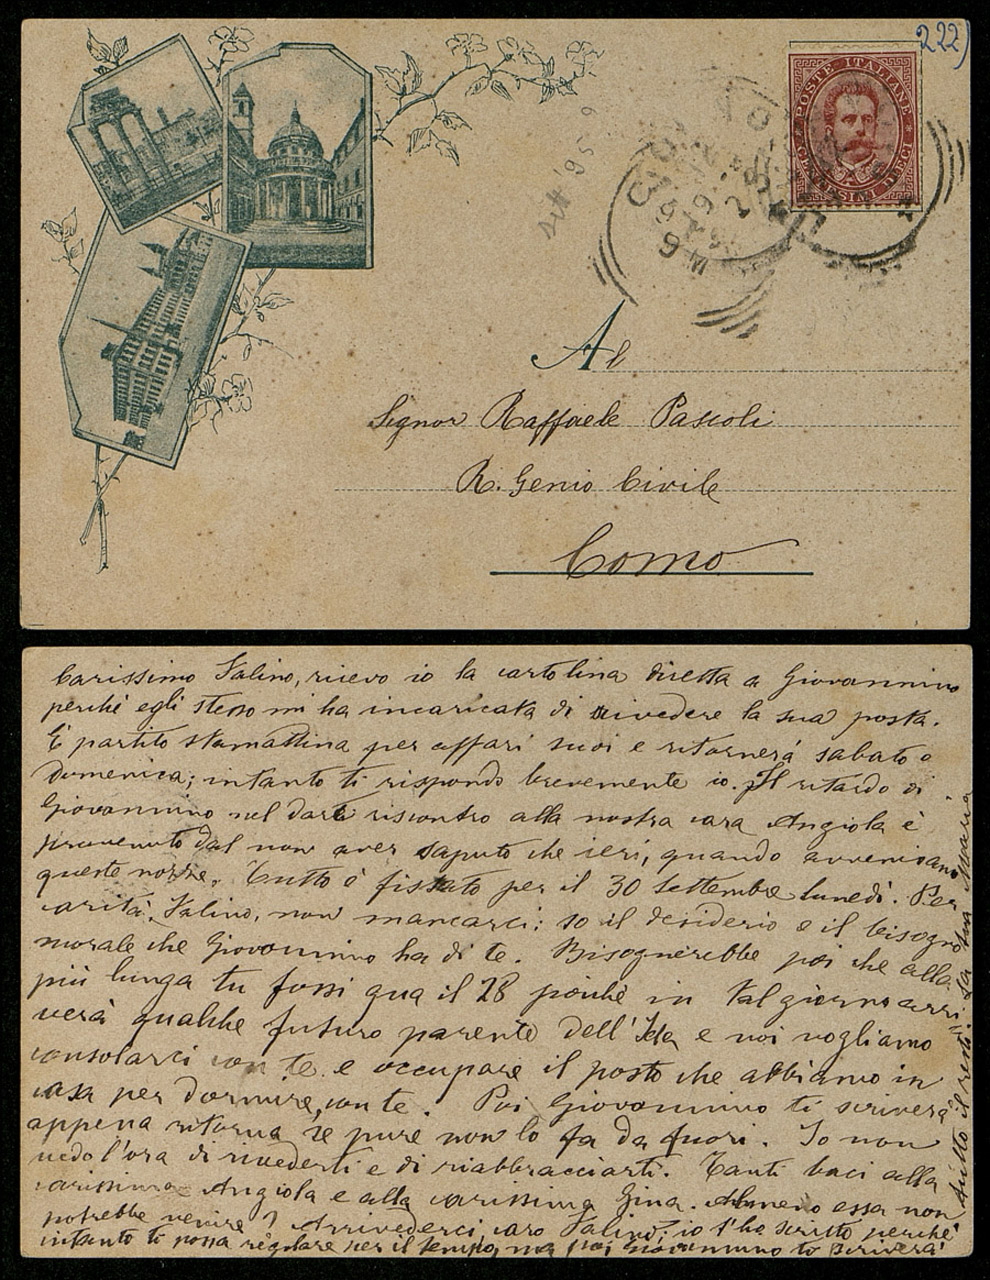 222)
POSTE ITALIANE
CENTESIMI DIECI
COMO
sett '95 9
Al
Signor Raffaele Pascoli
R. Genio Civile
Como
Carissimo Falino, ricevo io la cartolina diretta a Giovannino
perchè egli stesso mi ha incaricata di rivedere la sua posta.
È partito stamattina per affari suoi e ritornerà sabato o
domenica; intanto ti rispondo brevemente io. Il ritardo di
Giovannino nel dare riscontro alla nostra cara Angiola è
provenuto dal non aver saputo che ieri, quando avvenivano
queste nozze. Tutto è fissato per il 30 settembre lunedì. Per
carità, Falino, non mancarci: so il desiderio e il bisogno
morale che Giovannino ha di te. Bisognerebbe poi che alla
più lunga tu fossi qua il 28 poichè in tal giorno arri
verà qualche futuro parente dell'Ida e noi vogliamo
consolarci con te e occupare il posto che abbiamo in
casa per dormire, con te. Poi Giovannino ti scriverà
appena ritorna se pure non lo fa da fuori. Io non
vedo l'ora di rivederti e di riabbracciarti. Tanti baci alla
carissima Angiola e alla carissima Gina. Almeno essa non
potrebbe venire? Arrivederci caro Falino; io t'ho scritto perchè
intanto ti possa regolare per il tempo, ma poi Giovannino to scriverà
tutto il resto. La tua Maria